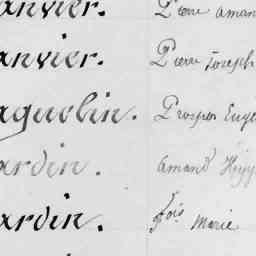 anvier. Pierre Aman
anvier. Pierre Joseph
aguelin. Prosper Eugè
ardin. Amand Hipp
ardin. fois Marie